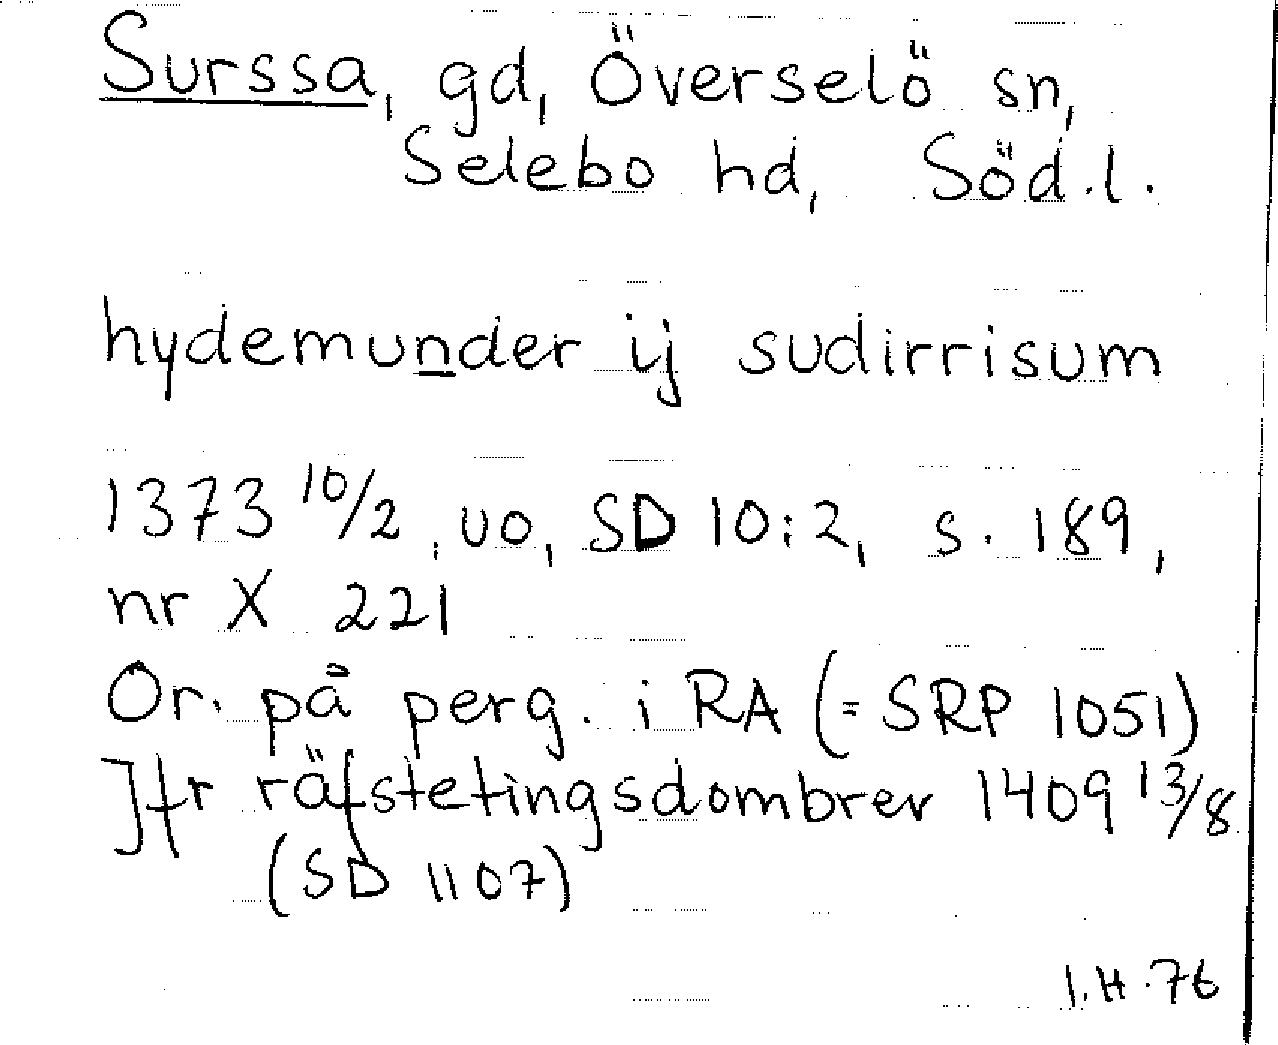 Surssa, gd, Överselö sn,
Selebo hd, Söd.l.
hydemunder ij sudirrisum
1373 10/2, uo, SD 10:2, s. 189,
nr X 221
Or. på perg. i RA (=SRP 1051)
Jfr räfstetingsdombrev 1409 13/8
(SD 1107)
I.H.76